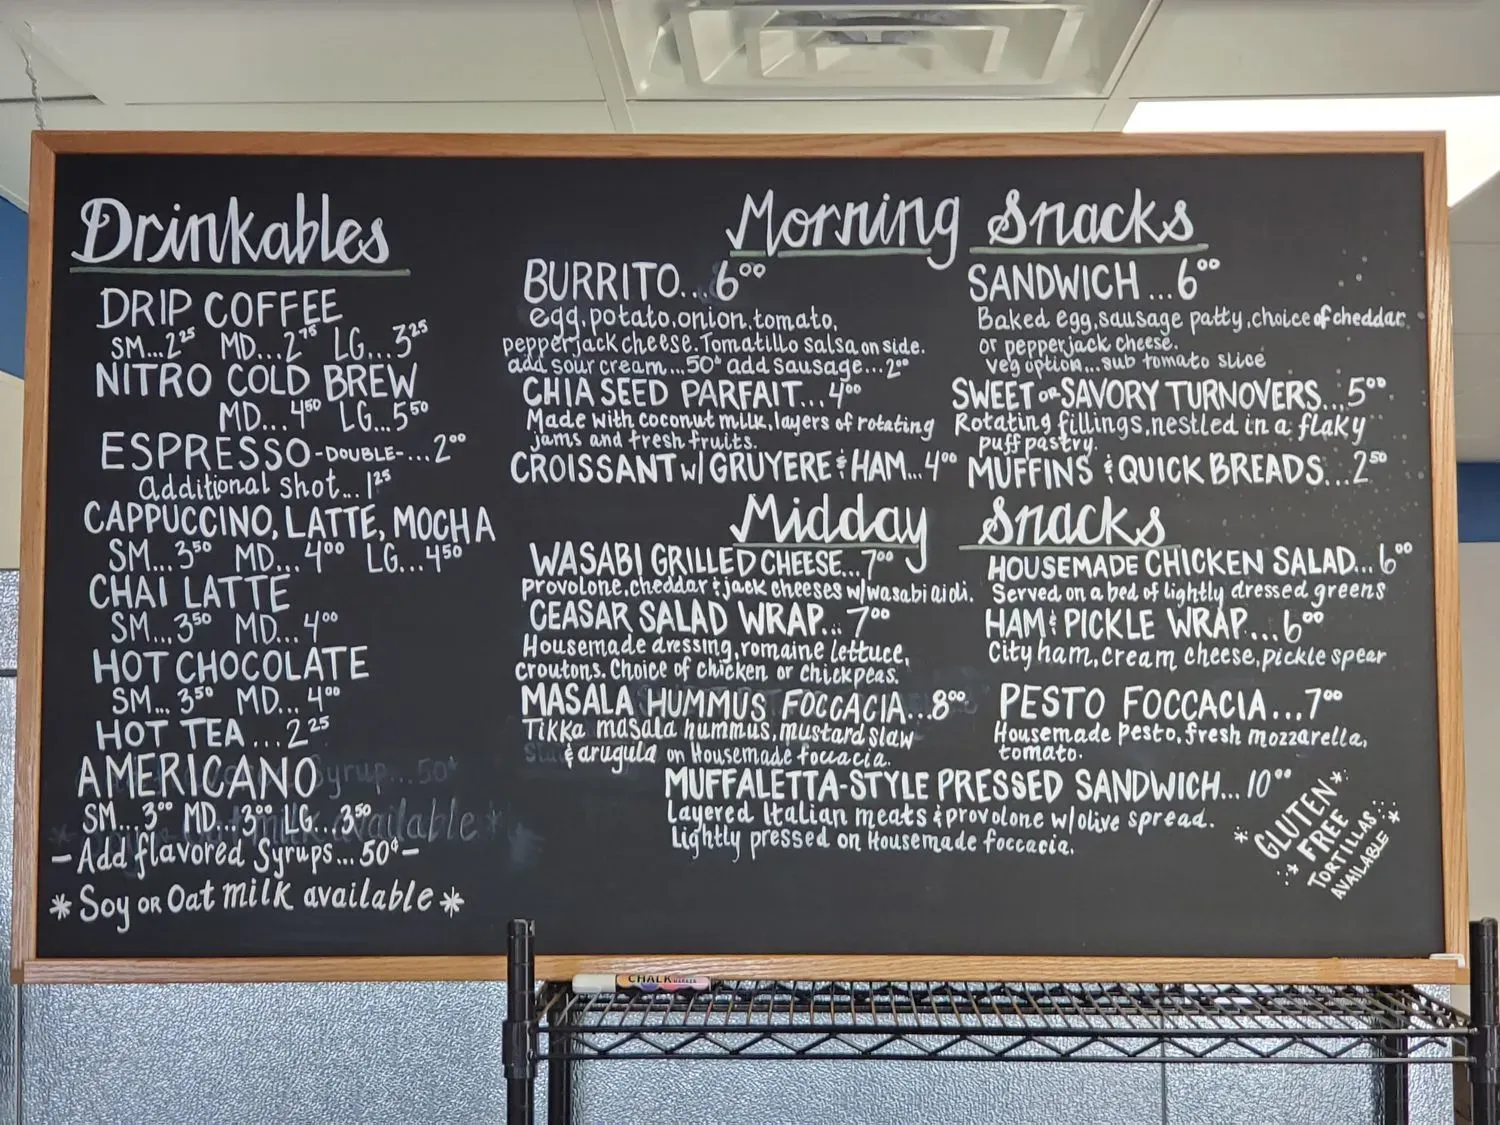 Drinkables
DRIP COFFEE
SM...2²⁵ MD...2⁷⁵ LG...3²⁵
NITRO COLD BREW
MD...4⁵⁰ LG...5⁵⁰
ESPRESSO -DOUBLE-...2⁰⁰
Additional shot...1²⁵
CAPPUCCINO, LATTE, MOCHA
SM...3⁵⁰ MD...4⁰⁰ LG...4⁵⁰
CHAI LATTE
SM...3⁵⁰ MD...4⁰⁰
HOT CHOCOLATE
SM...3⁵⁰ MD...4⁰⁰
HOT TEA...2²⁵
AMERICANO
SM...3⁰⁰ MD...3⁰⁰ LG...3⁵⁰
- Add flavored Syrups...50¢ -
* Soy OR Oat milk available *
Morning Snacks
BURRITO...6⁰⁰
egg, potato, onion, tomato,
pepper jack cheese. Tomatillo salsa on side.
add sour cream...50¢ add sausage...2⁰⁰
CHIA SEED PARFAIT...4⁰⁰
Made with coconut milk, layers of rotating
jams and fresh fruits.
CROISSANT w/ GRUYERE & HAM...4⁰⁰
SANDWICH...6⁰⁰
Baked egg, sausage patty, choice of cheddar
or pepperjack cheese.
veg option...sub tomato slice
SWEET OR SAVORY TURNOVERS...5⁰⁰
Rotating fillings, nestled in a flaky
puff pastry.
MUFFINS & QUICK BREADS...2⁵⁰
Midday Snacks
WASABI GRILLED CHEESE...7⁰⁰
provolone, cheddar & jack cheeses w/wasabi aioli.
CEASAR SALAD WRAP...7⁰⁰
Housemade dressing, romaine lettuce,
croutons. Choice of chicken or chickpeas.
MASALA HUMMUS FOCCACIA...8⁰⁰
Tikka masala hummus, mustard slaw
& arugula on Housemade foccacia.
HOUSEMADE CHICKEN SALAD...6⁰⁰
Served on a bed of lightly dressed greens
HAM & PICKLE WRAP...6⁰⁰
City ham, cream cheese, pickle spear
PESTO FOCCACIA...7⁰⁰
Housemade Pesto, fresh mozzarella,
tomato.
MUFFALETTA-STYLE PRESSED SANDWICH...10⁰⁰
Layered Italian meats & provolone w/olive spread.
Lightly pressed on Housemade foccacia.
* GLUTEN *
FREE
* TORTILLAS *
AVAILABLE
CHALK MARKER